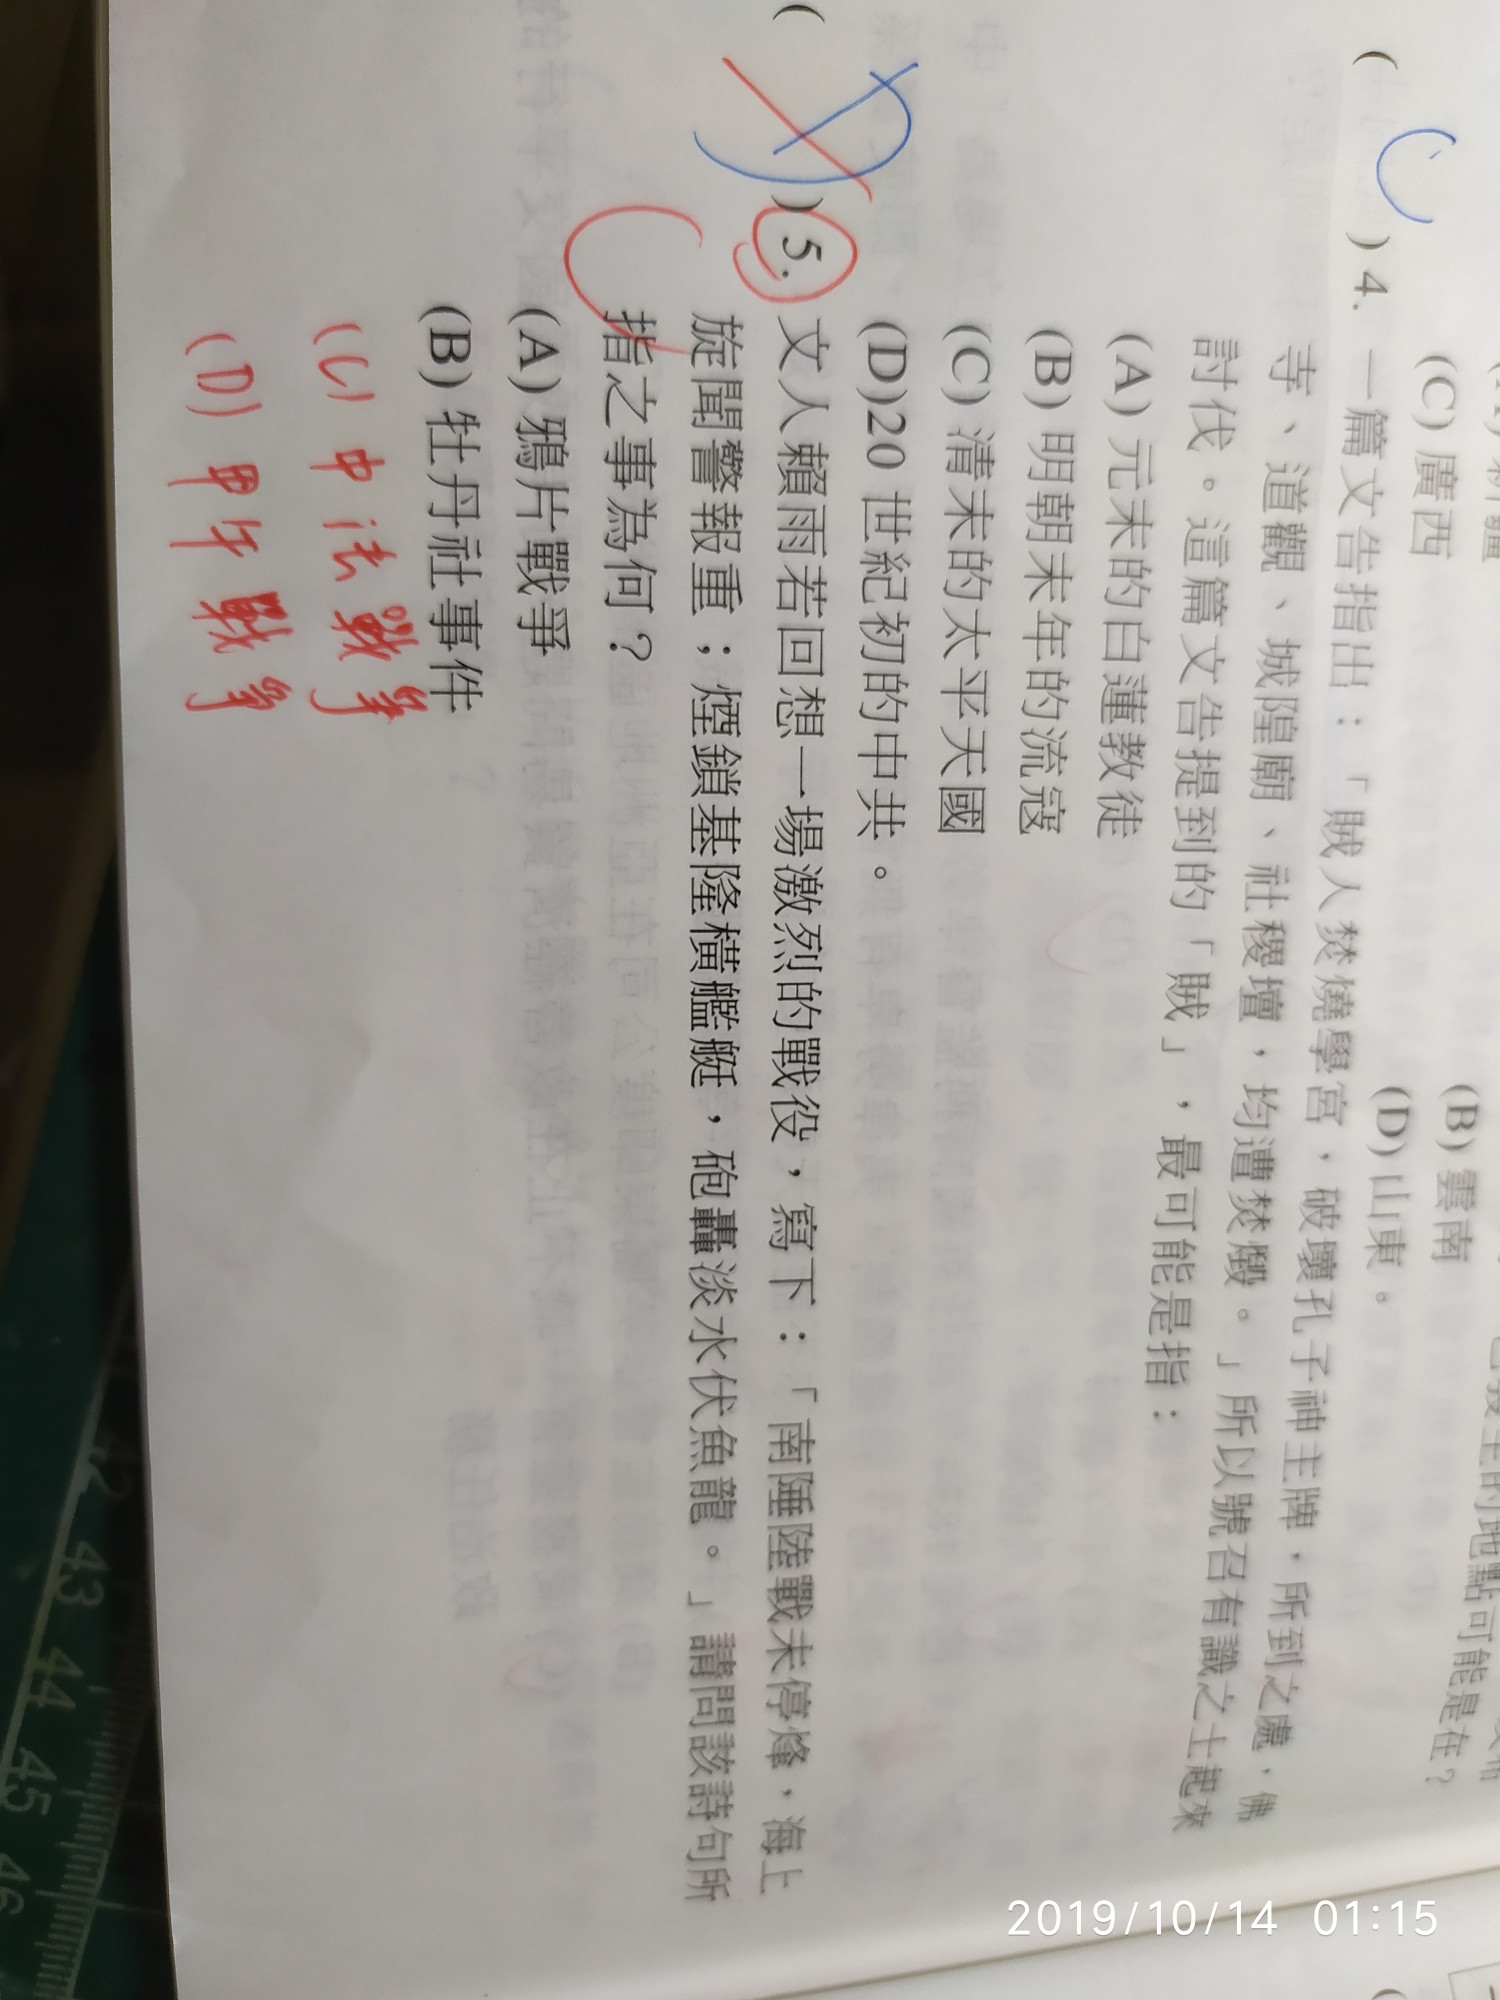 (C) 廣西
(B) 雲南
(D) 山東。
( C ) 4. 一篇文告指出：「賊人焚燒學宮，破壞孔子神主牌，所到之處，佛
寺、道觀、城隍廟、社稷壇，均遭焚燬。」所以號召有識之士起來
討伐。這篇文告提到的「賊」，最可能是指：
(A) 元末的白蓮教徒
(B) 明朝末年的流寇
(C) 清末的太平天國
(D)20 世紀初的中共。
( D ) 5. 文人賴雨若回想一場激烈的戰役，寫下：「南陲陸戰未停烽，海上
旋聞警報重；煙鎖基隆橫艦艇，砲轟淡水伏魚龍。」請問該詩句所
指之事為何？
C
(A) 鴉片戰爭
(B) 牡丹社事件
(C) 中法戰爭
(D) 甲午戰爭
42 43 44 45 46
2019/10/14 01:15